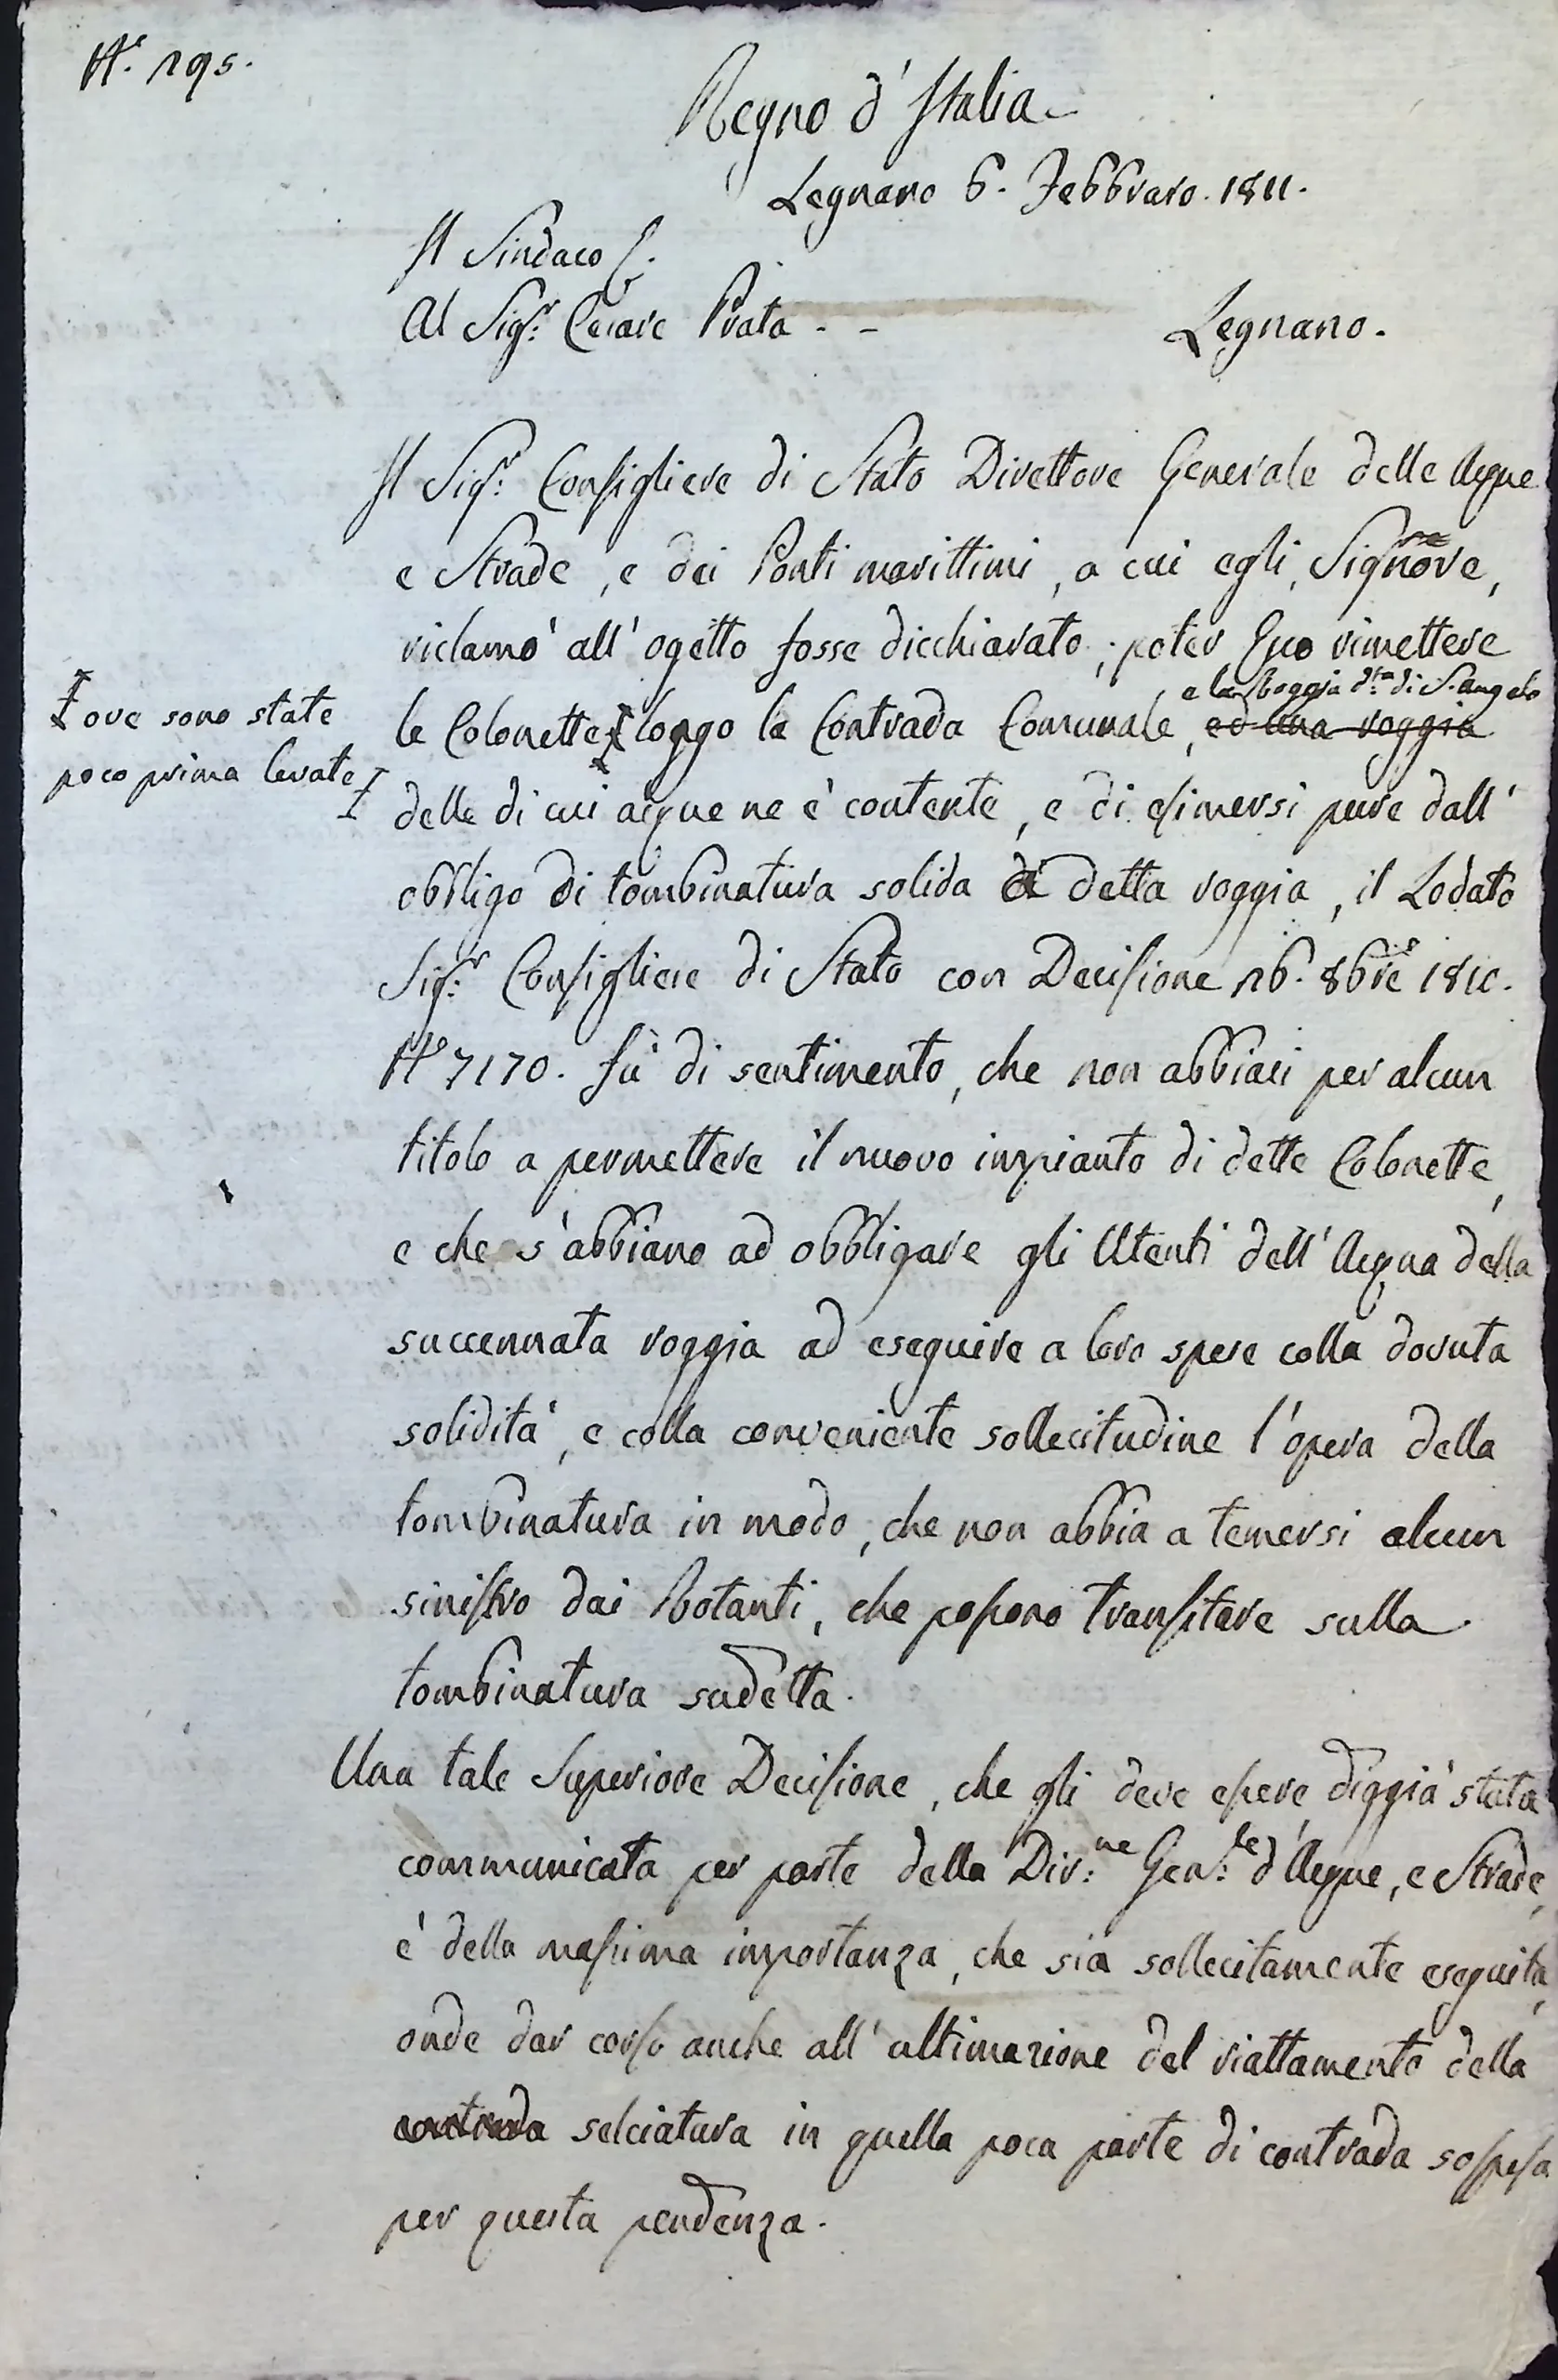 N.° 295.
Regno d'Italia
Legnano 6. Febbraro. 1811.
Il Sindaco
Al Sig.r Cesare Prata - -
Legnano.
Il Sig.r Consigliere di Stato Direttore Generale delle Acque
e Strade, e dei Porti marittimi, a cui egli, Signore,
riclamò all'ogetto fosse dicchiarato, poter Esso rimettere
e la Roggia d.ta di S. Angelo
le Colonette longo la Contrada Comunale, ed una roggia
ove sono state
poco prima levate
delle di cui acque ne è contente, e di esimersi pure dall'
obbligo di tombinatura solida di detta roggia, il Lodato
Sig.r Consigliere di Stato con Decisione 26. 8bre 1810.
N° 7170. fù di sentimento, che non abbiasi per alcun
titolo a permettere il nuovo impianto di dette Colonette,
e che s'abbiano ad obbligare gli Utenti dell'Acqua della
succennata roggia ad eseguire a loro spese colla dovuta
solidità, e colla conveniente sollecitudine l'opera della
tombinatura in modo, che non abbia a temersi alcun
sinistro dai Rotanti, che possono transitare sulla
tombinatura sudetta.
Una tale Superiore Decisione, che gli deve essere diggià stata
communicata per parte della Div:ne Gen:le d'Acque, e Strade,
è della massima importanza, che sia sollecitamente eseguita,
onde dar corso anche all'ultimazione del riattamento della
contrada selciatura in quella poca parte di contrada sospesa
per questa pendenza.